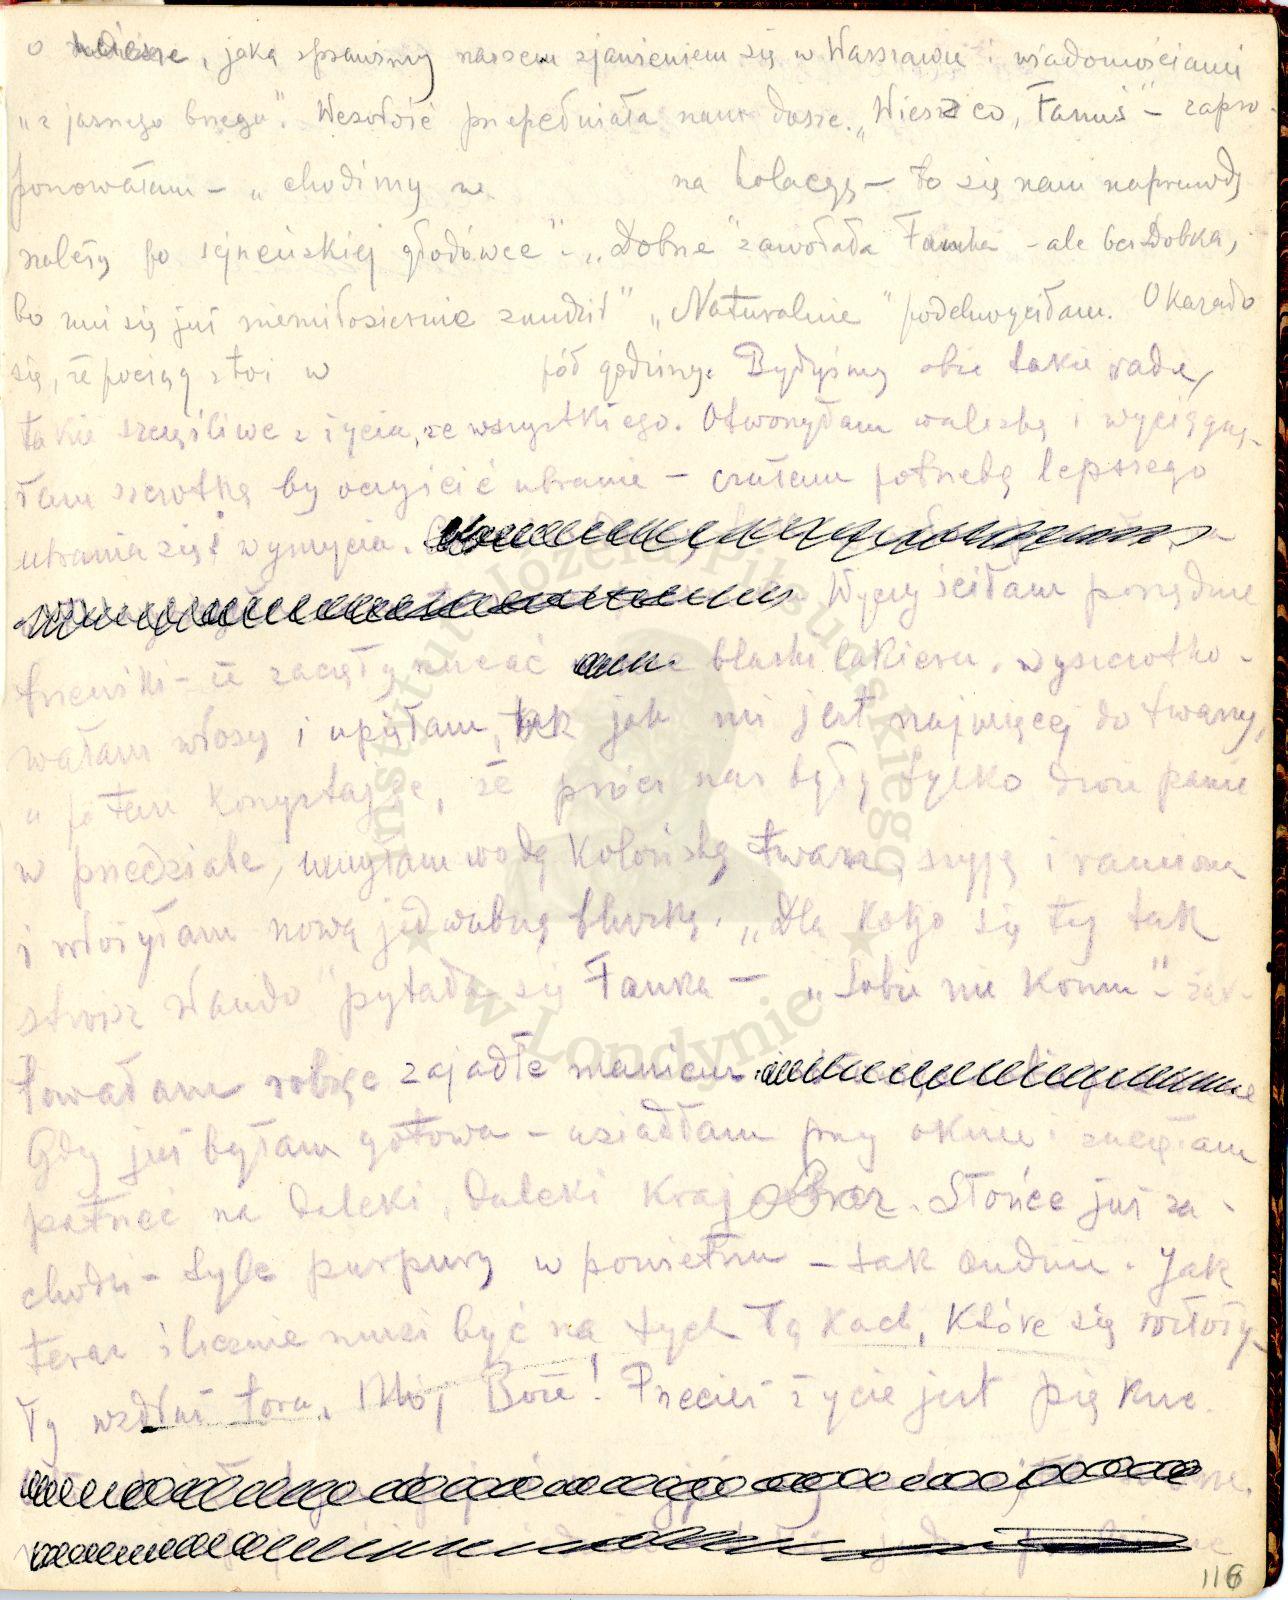 o radości, jaką sprawimy naszem zjawieniem się w Warszawie i wiadomościami
„z jasnego brzegu". Wesołość przepełniała nam dusze. „Wiesz co, Fanuś" – zapro-
ponowałam – „chodźmy na kolację – to się nam naprawdę
należy po sejneńskiej głodówce" – „Dobrze" zawołała Fanka – ale bez Dobka,
bo mi się już niemiłosiernie znudził" „Naturalnie" podchwyciłam. Okazało
się, że pociąg stoi w pół godziny. Byłyśmy obie takie rade,
takie szczęśliwe z życia, ze wszystkiego. Otworzyłam walizkę i wyciągnę-
łam szczotkę by oczyścić ubranie – czułam potrzebę lepszego
ubrania się i wymycia.
Wyczyściłam porządnie
trzewiki – że zaczęły rzucać blaski lakieru, wyszczotko-
wałam włosy i upięłam, tak jak mi jest najwięcej do twarzy,
a potem korzystając, że prócz nas były tylko dwie panie
w przedziale, umyłam wodą kolońską twarz, szyję i ramiona
i włożyłam nową jedwabną bluzkę. „Dla kogo się ty tak
stroisz Wando" pytała się Fanka – „Sobie nie komu" – żar-
towałam robiąc zajadle
Gdy już byłam gotowa – usiadłam przy oknie i zaczęłam
patrzeć na daleki, daleki krajobraz. Słońce już za-
chodzi – tyle purpury w powietrzu – tak cudnie. Jak
teraz ślicznie musi być na tych łąkach, które się rozłoży-
ły wzdłuż toru. Mój Boże! Przecież życie jest piękne.
116
Instytut Józefa Piłsudskiego
w Londynie